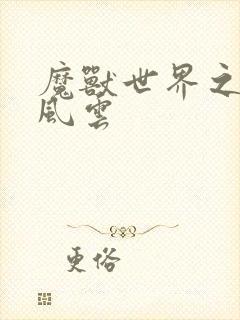 魔獸世界之
風雲
更俗